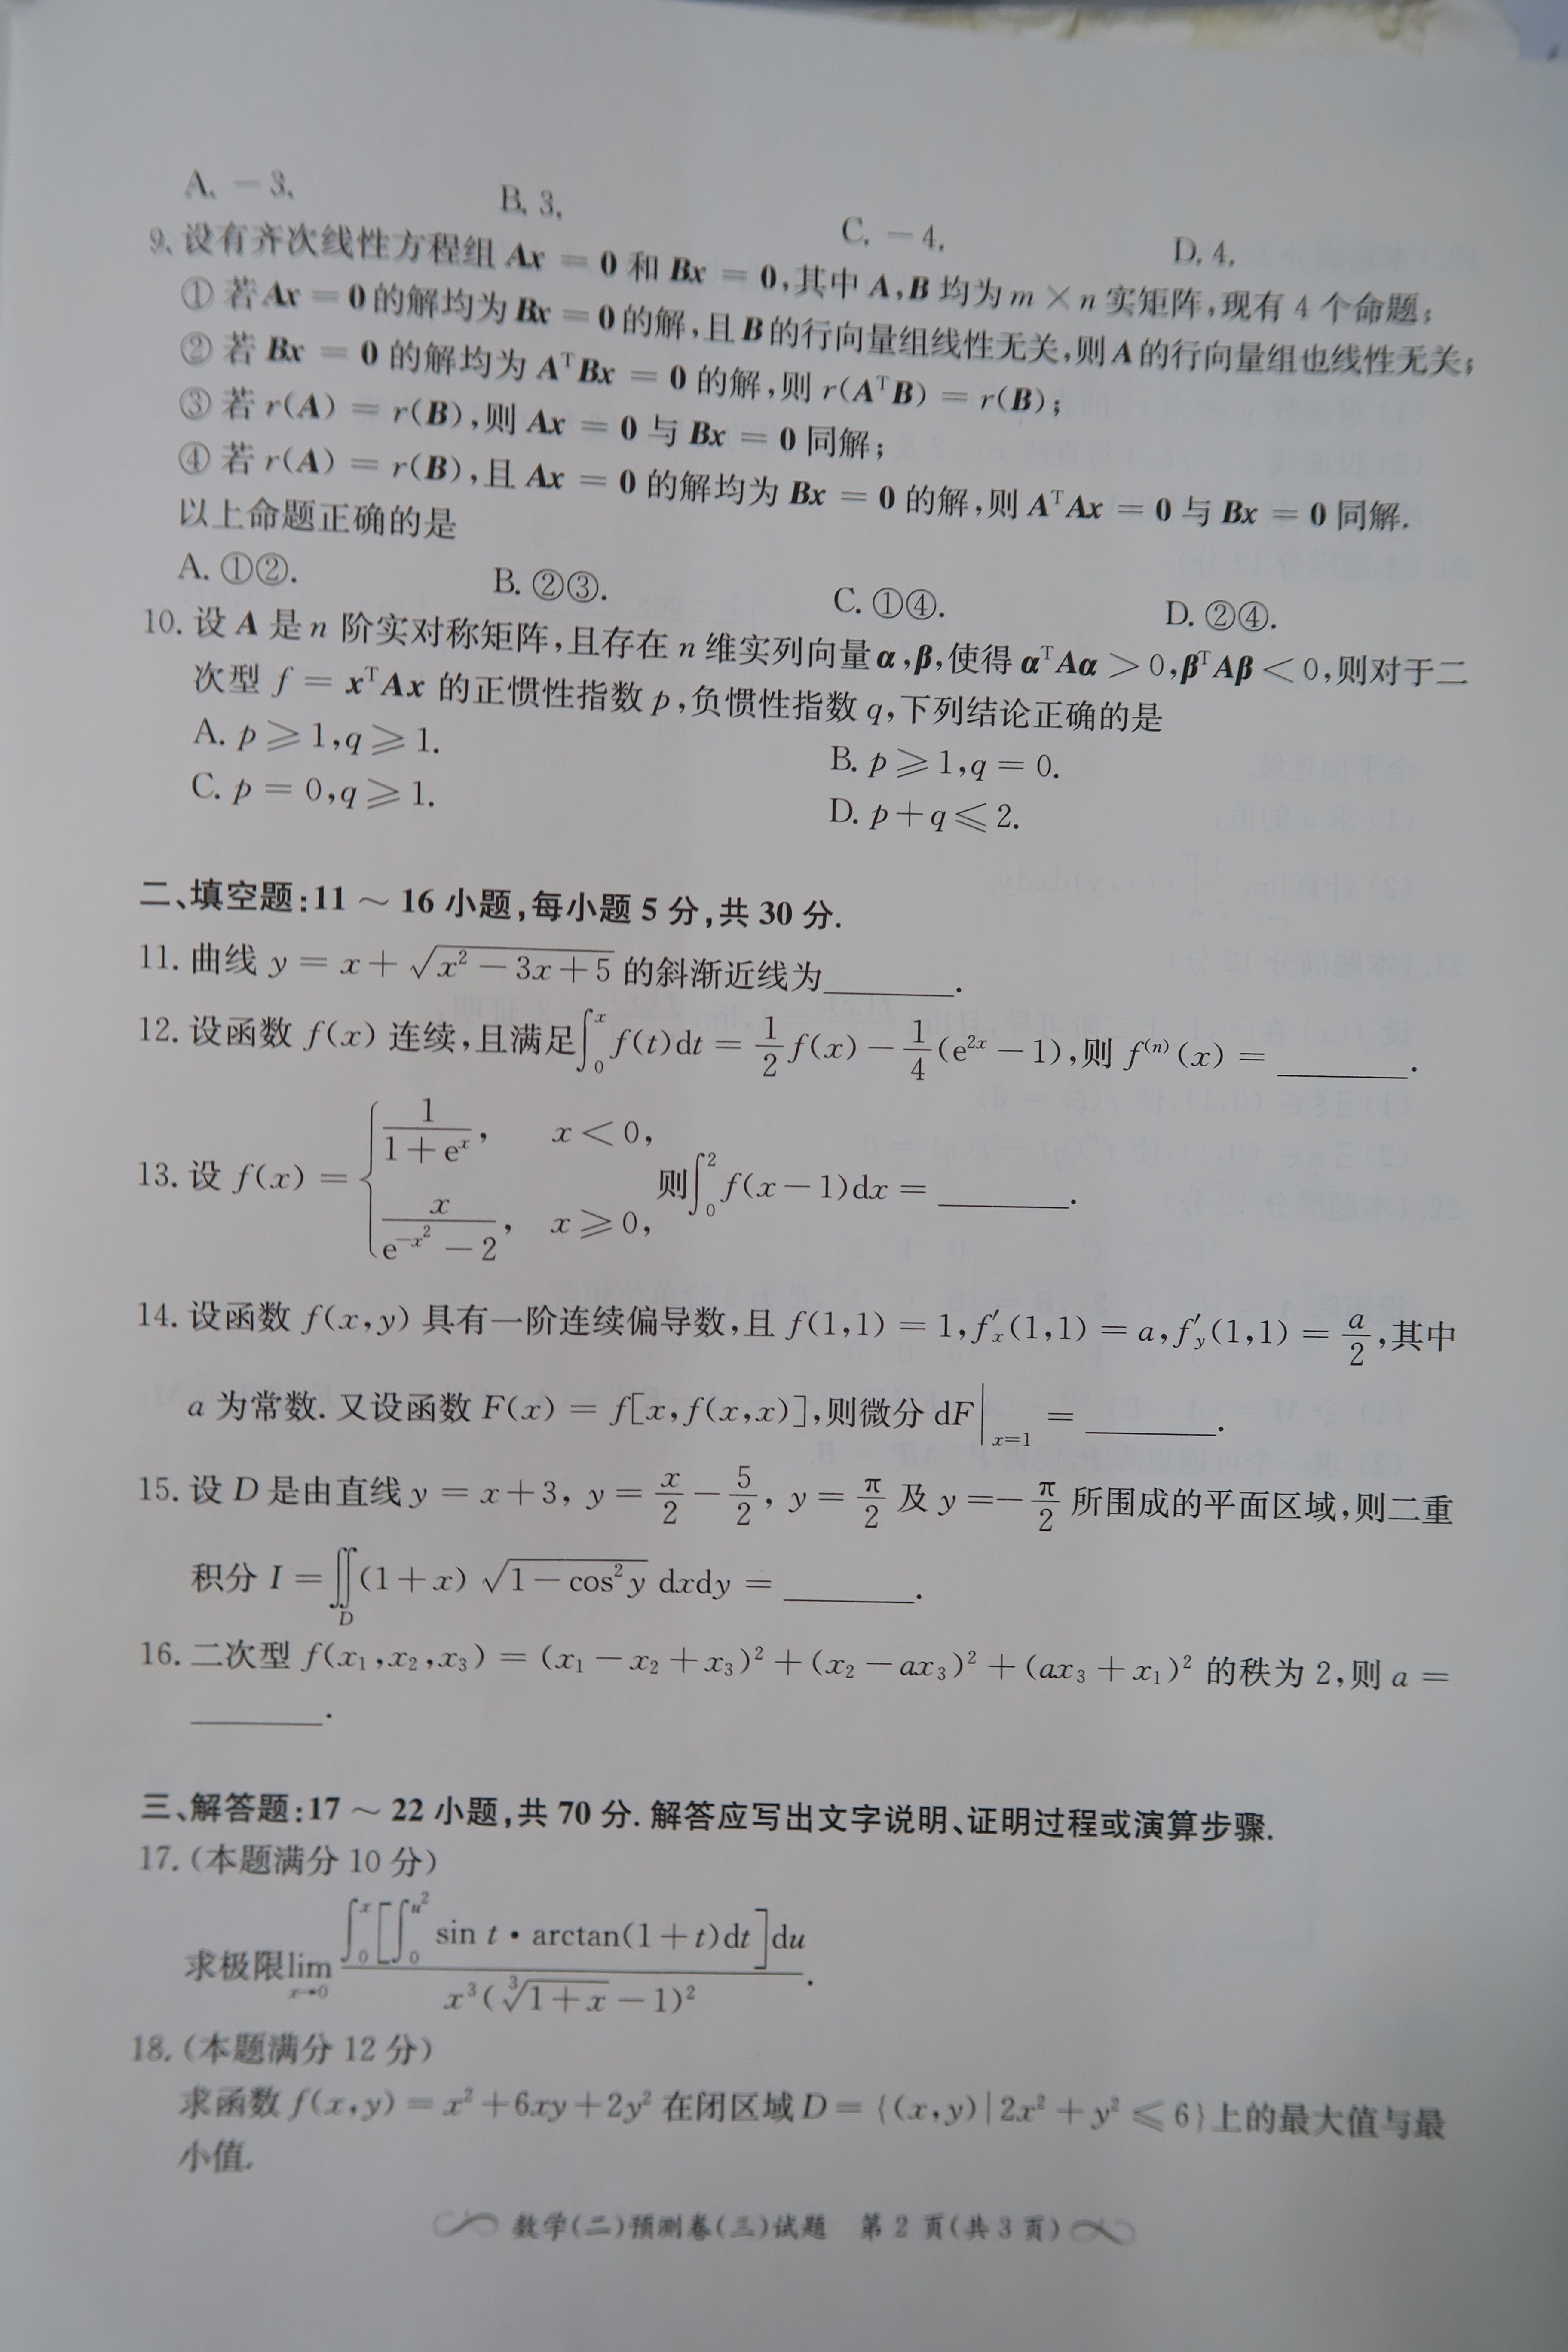 A. －3.　B. 3.　C. －4.　D. 4.
9. 设有齐次线性方程组 Ax = 0 和 Bx = 0,其中 A,B 均为 m × n 实矩阵,现有 4 个命题:
① 若 Ax = 0 的解均为 Bx = 0 的解,且 B 的行向量组线性无关,则 A 的行向量组也线性无关;
② 若 Bx = 0 的解均为 AᵀBx = 0 的解,则 r(AᵀB) = r(B);
③ 若 r(A) = r(B),则 Ax = 0 与 Bx = 0 同解;
④ 若 r(A) = r(B),且 Ax = 0 的解均为 Bx = 0 的解,则 AᵀAx = 0 与 Bx = 0 同解.
以上命题正确的是
A. ①②.　B. ②③.　C. ①④.　D. ②④.
10. 设 A 是 n 阶实对称矩阵,且存在 n 维实列向量 α,β,使得 αᵀAα > 0,βᵀAβ < 0,则对于二
次型 f = xᵀAx 的正惯性指数 p,负惯性指数 q,下列结论正确的是
A. p ⩾ 1,q ⩾ 1.　B. p ⩾ 1,q = 0.
C. p = 0,q ⩾ 1.　D. p + q ⩽ 2.
二、填空题:11 ～ 16 小题,每小题 5 分,共 30 分.
11. 曲线 y = x + √(x² − 3x + 5) 的斜渐近线为______.
12. 设函数 f(x) 连续,且满足∫₀ˣ f(t)dt = 1/2 f(x) − 1/4 (e²ˣ − 1),则 f⁽ⁿ⁾(x) = ______.
13. 设 f(x) = { 1/(1 + eˣ), x < 0, x/(e^(−x²) − 2), x ⩾ 0, 则∫₀² f(x − 1)dx = ______.
14. 设函数 f(x,y) 具有一阶连续偏导数,且 f(1,1) = 1,f′ₓ(1,1) = a,f′y(1,1) = a/2,其中
a 为常数. 又设函数 F(x) = f[x,f(x,x)],则微分 dF|x=1 = ______.
15. 设 D 是由直线 y = x + 3, y = x/2 − 5/2, y = π/2 及 y = −π/2 所围成的平面区域,则二重
积分 I = ∬D (1 + x) √(1 − cos²y) dxdy = ______.
16. 二次型 f(x₁,x₂,x₃) = (x₁ − x₂ + x₃)² + (x₂ − ax₃)² + (ax₃ + x₁)² 的秩为 2,则 a =
______.
三、解答题:17 ～ 22 小题,共 70 分. 解答应写出文字说明、证明过程或演算步骤.
17. (本题满分 10 分)
求极限 lim x→0 ∫₀ˣ [∫₀^(u²) sin t · arctan(1 + t)dt]du / x³(∛(1 + x) − 1)².
18. (本题满分 12 分)
求函数 f(x,y) = x² + 6xy + 2y² 在闭区域 D = {(x,y) | 2x² + y² ⩽ 6}上的最大值与最
小值.
数学(二)预测卷(三)试题　第 2 页(共 3 页)